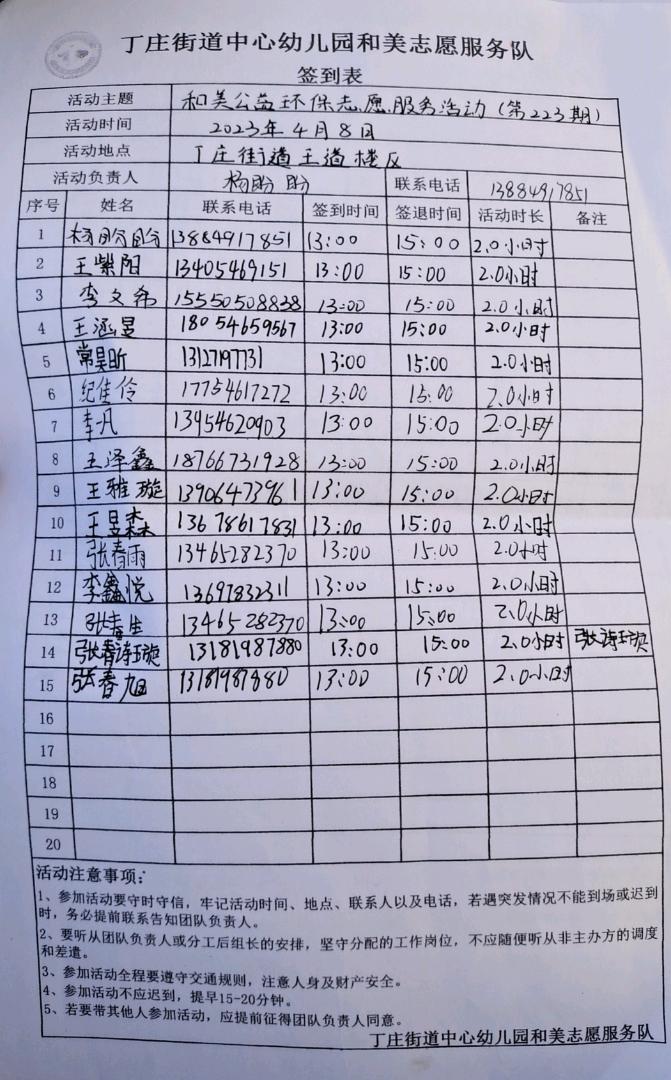 丁庄街道中心幼儿园和美志愿服务队
签到表
活动主题 和美公益环保志愿服务活动（第223期）
活动时间 2023年4月8日
活动地点 丁庄街道王道楼区
活动负责人 杨盼盼 联系电话 13884917851
序号 姓名 联系电话 签到时间 签退时间 活动时长 备注
1 杨盼盼 13884917851 13:00 15:00 2.0小时
2 王紫阳 13405469151 13:00 15:00 2.0小时
3 李文希 15550508838 13:00 15:00 2.0小时
4 王涵曼 18054659567 13:00 15:00 2.0小时
5 常昊昕 13127197731 13:00 15:00 2.0小时
6 纪佳伶 17754617272 13:00 15:00 2.0小时
7 李凡 13954620903 13:00 15:00 2.0小时
8 王泽鑫 18766731928 13:00 15:00 2.0小时
9 王雅璇 13906473961 13:00 15:00 2.0小时
10 王昱森 13678617831 13:00 15:00 2.0小时
11 张春雨 13465282370 13:00 15:00 2.0小时
12 李鑫悦 13697832311 13:00 15:00 2.0小时
13 张春生 13465282370 13:00 15:00 2.0小时
14 张春诗璇 13181987880 13:00 15:00 2.0小时 张诗璇
15 张春旭 13181987880 13:00 15:00 2.0小时
16
17
18
19
20
活动注意事项：
1、参加活动要守时守信，牢记活动时间、地点、联系人以及电话，若遇突发情况不能到场或迟到
时，务必提前联系告知团队负责人。
2、要听从团队负责人或分工后组长的安排，坚守分配的工作岗位，不应随便听从非主办方的调度
和差遣。
3、参加活动全程要遵守交通规则，注意人身及财产安全。
4、参加活动不应迟到，提早15-20分钟。
5、若要带其他人参加活动，应提前征得团队负责人同意。
丁庄街道中心幼儿园和美志愿服务队